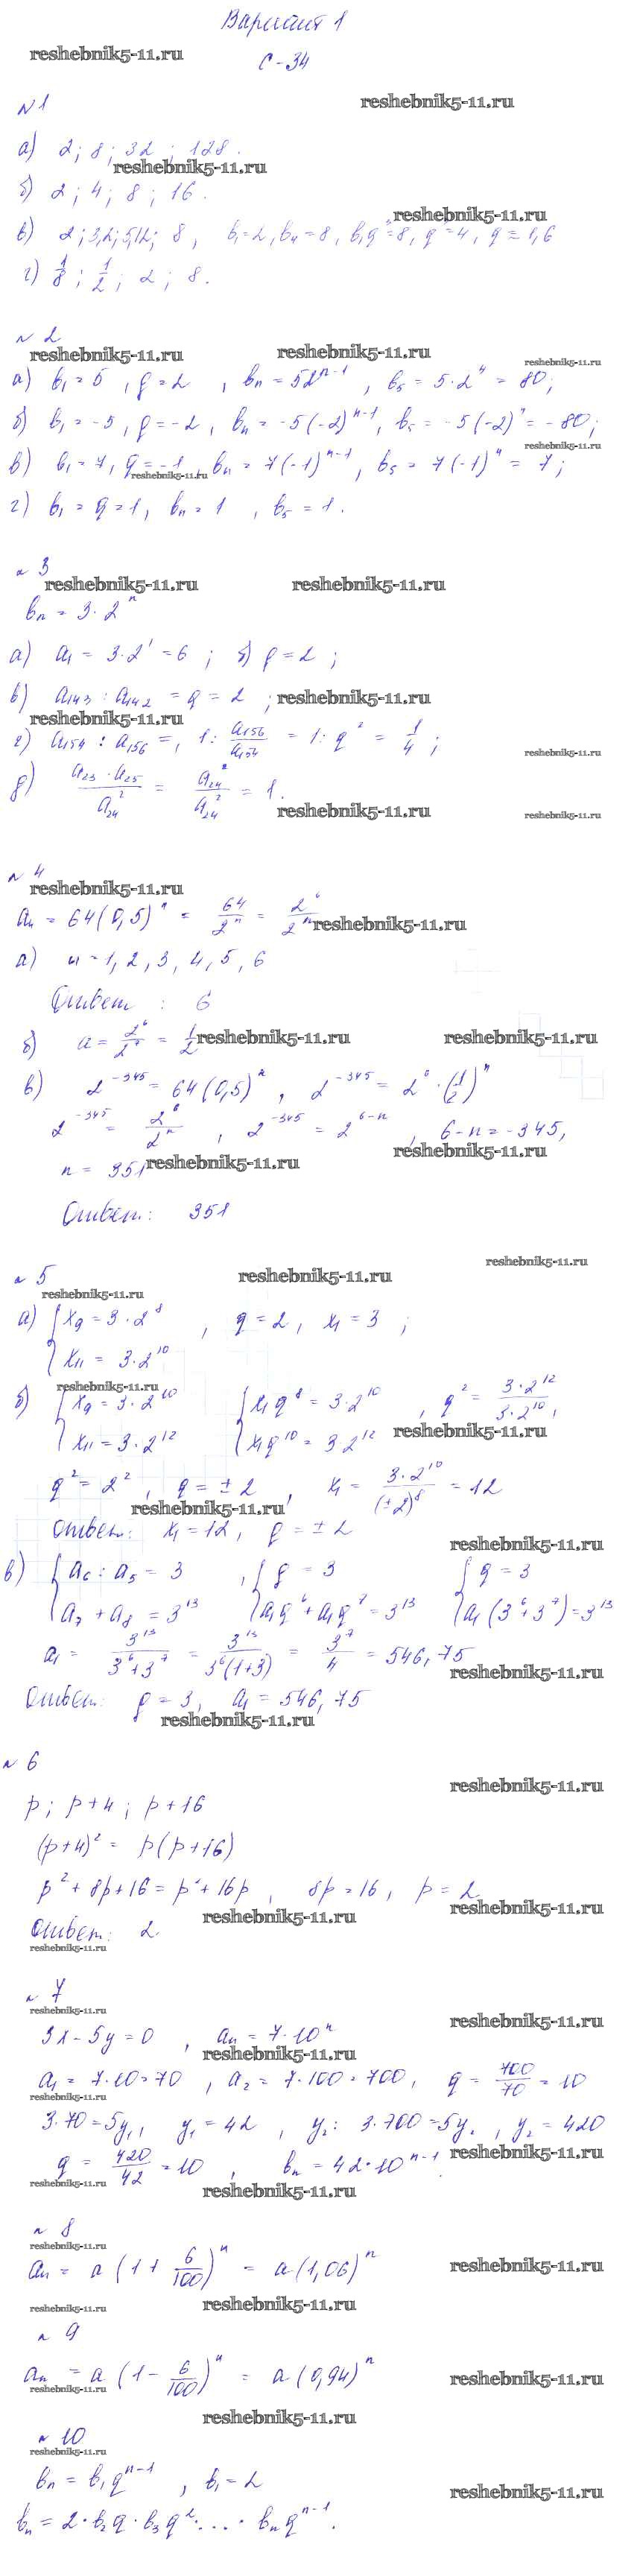 Вариант 1
reshebnik5-11.ru
С-34
№1
reshebnik5-11.ru
а) 2; 8; 32; 128.
reshebnik5-11.ru
б) 2; 4; 8; 16.
reshebnik5-11.ru
в) 2; 3,2; 5,12; 8, b₁=2, b₄=8, b₁q³=8, q³=4, q≈1,6
г) 1/8; 1/2; 2; 8.
№2
reshebnik5-11.ru reshebnik5-11.ru reshebnik5-11.ru
а) b₁=5, q=2, bₙ=5·2ⁿ⁻¹, b₅=5·2⁴=80;
б) b₁=-5, q=-2, bₙ=-5(-2)ⁿ⁻¹, b₅=-5(-2)⁴=-80;
reshebnik5-11.ru
в) b₁=7, q=-1, bₙ=7(-1)ⁿ⁻¹, b₅=7(-1)⁴=7;
reshebnik5-11.ru
г) b₁=q=1, bₙ=1, b₅=1.
№3
reshebnik5-11.ru reshebnik5-11.ru
bₙ=3·2ⁿ
а) a₁=3·2¹=6; б) q=2;
в) a₁₄₃:a₁₄₂=q=2; reshebnik5-11.ru
reshebnik5-11.ru
г) a₁₅₄:a₁₅₆=, 1: a₁₅₆/a₁₅₄ = 1:q² = 1/4; reshebnik5-11.ru
д) a₂₃·a₂₅/a₂₄² = a₂₄²/a₂₄² = 1.
reshebnik5-11.ru reshebnik5-11.ru
№4
reshebnik5-11.ru
aₙ=64(0,5)ⁿ = 64/2ⁿ = 2⁶/2ⁿ reshebnik5-11.ru
а) n=1, 2, 3, 4, 5, 6
Ответ: 6
б) a=2⁶/2⁷=1/2 reshebnik5-11.ru reshebnik5-11.ru
в) 2⁻³⁴⁵=64(0,5)ⁿ, 2⁻³⁴⁵=2⁶·(1/2)ⁿ
2⁻³⁴⁵=2⁶/2ⁿ, 2⁻³⁴⁵=2⁶⁻ⁿ, 6-n=-345,
reshebnik5-11.ru
n=351 reshebnik5-11.ru
Ответ: 351
reshebnik5-11.ru
№5 reshebnik5-11.ru
reshebnik5-11.ru
а) { x₉=3·2⁸, q=2, x₁=3;
x₁₁=3·2¹⁰
reshebnik5-11.ru
б) { x₉=3·2¹⁰ { x₁q⁸=3·2¹⁰, q²=3·2¹²/3·2¹⁰,
x₁₁=3·2¹² x₁q¹⁰=3·2¹² reshebnik5-11.ru
q²=2², q=±2, x₁=3·2¹⁰/(±2)⁸=12
reshebnik5-11.ru
Ответ: x₁=12, q=±2
reshebnik5-11.ru
в) { a₆:a₅=3, { q=3 { q=3
a₇+a₈=3¹³ a₁q⁶+a₁q⁷=3¹³ a₁(3⁶+3⁷)=3¹³
a₁=3¹³/3⁶+3⁷=3¹³/3⁶(1+3)=3⁷/4=546,75
reshebnik5-11.ru
Ответ: q=3, a₁=546,75
reshebnik5-11.ru
№6
reshebnik5-11.ru
p; p+4; p+16
(p+4)²=p(p+16)
p²+8p+16=p²+16p, 8p=16, p=2
reshebnik5-11.ru reshebnik5-11.ru
Ответ: 2
reshebnik5-11.ru
№7
reshebnik5-11.ru reshebnik5-11.ru
3x-5y=0, aₙ=7·10ⁿ
reshebnik5-11.ru
a₁=7·10=70, a₂=7·100=700, q=700/70=10
reshebnik5-11.ru
3·70=5y₁, y₁=42, y₂: 3·700=5y₂, y₂=420
q=420/42=10, bₙ=42·10ⁿ⁻¹. reshebnik5-11.ru
reshebnik5-11.ru reshebnik5-11.ru
№8
reshebnik5-11.ru
aₙ=a(1+6/100)ⁿ=a(1,06)ⁿ reshebnik5-11.ru
reshebnik5-11.ru reshebnik5-11.ru
№9
aₙ=a(1-6/100)ⁿ=a(0,94)ⁿ reshebnik5-11.ru
reshebnik5-11.ru
reshebnik5-11.ru
№10
reshebnik5-11.ru
bₙ=b₁qⁿ⁻¹, b₁=2
reshebnik5-11.ru
bₙ=2·b₂q·b₃q²·...·bₙqⁿ⁻¹.